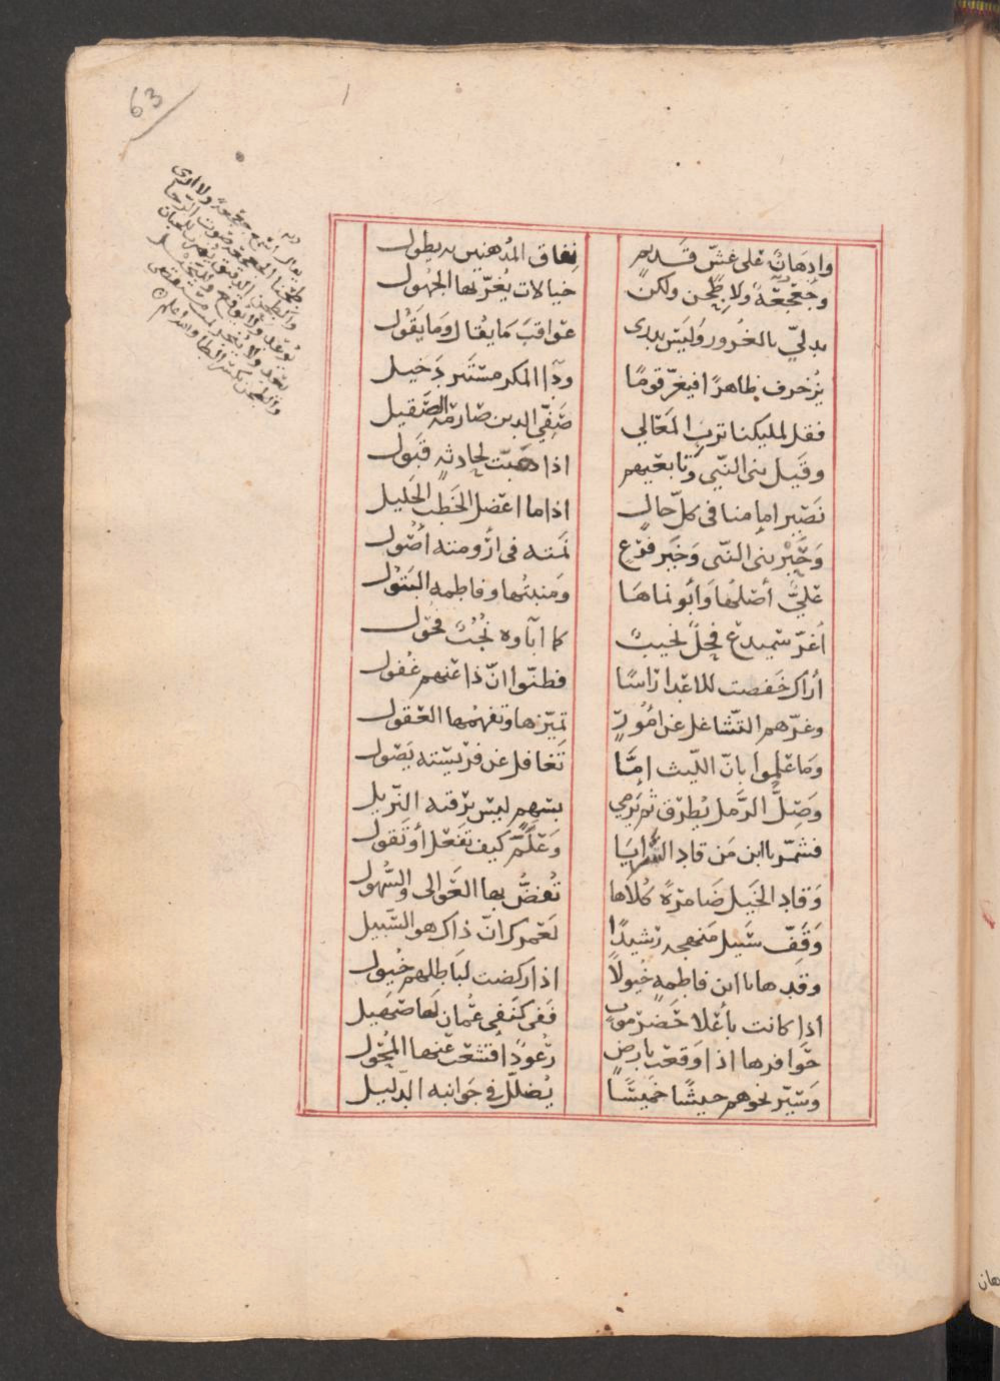 63
وادهان على غش قديم نفاق المدهنين به يطول
وجعجعة ولا طحن ولكن خيالات يغر بها الجهول
يدلي بالغرور وليس يدرى عواقب ما يقال وما يقول
يزخرف ظاهرا فيغر قوما وذا المكر مستتر دخيل
فقل لمليكنا ترب المعالي صفي الدين صارمه الصقيل
وقيل بنى النبي وتابعيهم اذا هبت لحادثة قبول
نصير امامنا فى كل حال اذا ما اعضل الخطب الجليل
وخير بنى النبى وخير فرع نمته فى أرومته أصول
علي أصلها وأبو نماها ومنبتها وفاطمة البتول
أغر سميدع فحل نجيب كما اباوه نجب فحول
أراك خفضت للاعدا راسا فظنوا ان ذا عنهم غفول
وغرهم التشاغل عن امور تميزها وتفهمها العقول
وما علموا بان الليث اما تغافل عن فريسته يصول
وصل الرمل يطرق ثم يرمي بسهم ليس يرقيه النزيل
فشمر يا ابن من قاد السرايا وعلم كيف تفعل أو تقول
وقاد الخيل ضامرة كلاها تغض بها العوالى والسهول
وقف سبيل منهجه رشيدا لعمرك ان ذاك هو السبيل
وقدها يا ابن فاطمة خيولا اذا ركضت لباطلهم خيول
اذا كانت بأعلا حضرموت ففى كنفى عمان لها صهيل
حوافرها اذا وقعت بارض رعودا اقشعت عنها المحول
وسير نحوهم جيشا خميسا يضلل في جوانبه الدليل